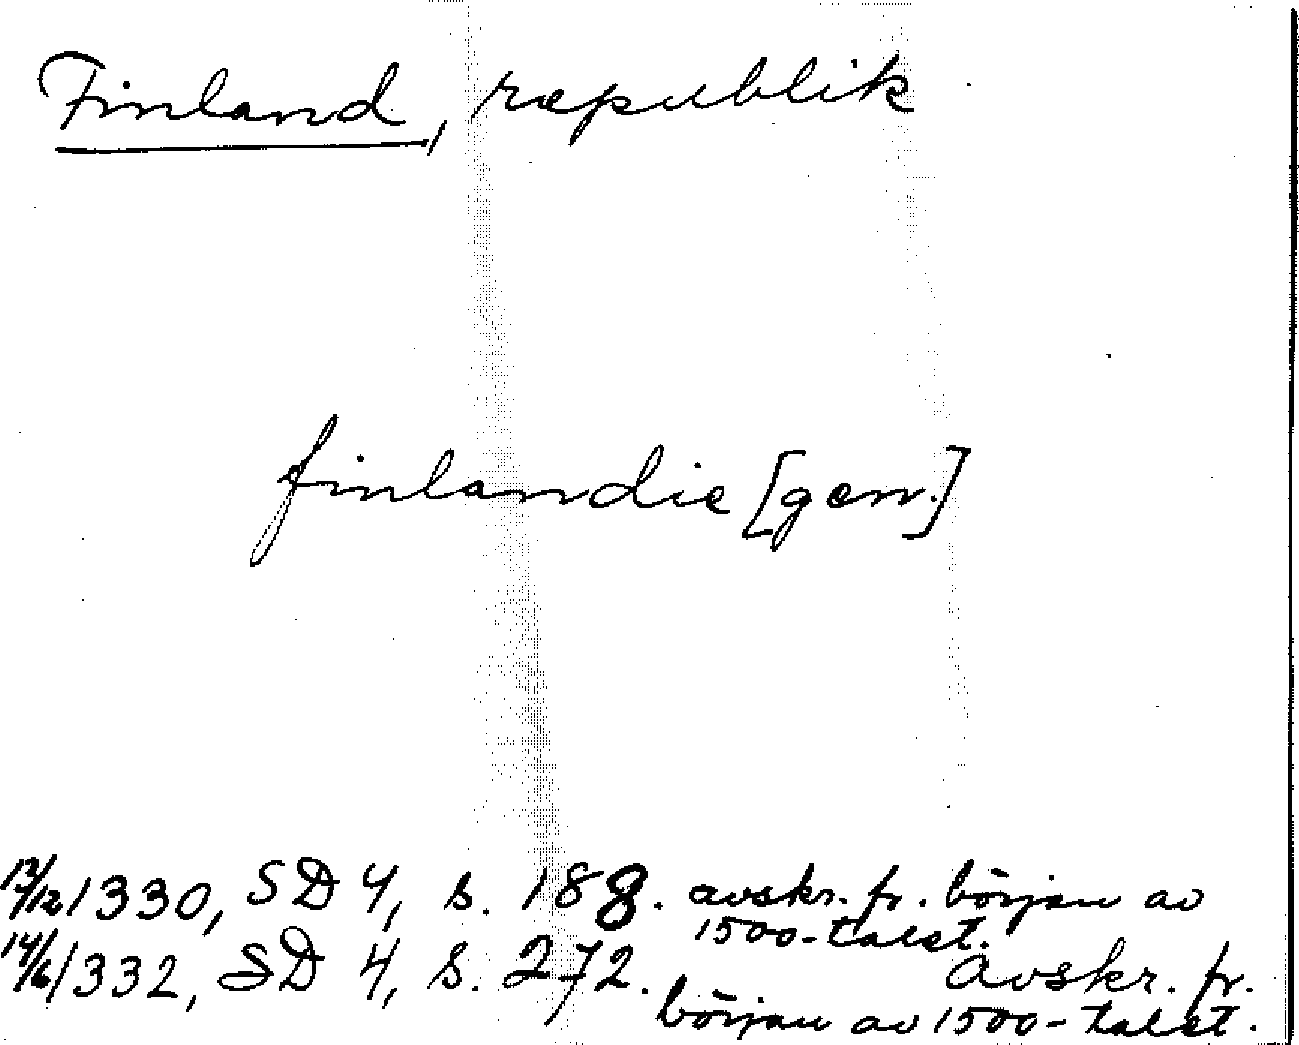 Finland, republik
finlandie [gen.]
12/12 1330, SD 4, s. 188. avskr. fr. början av
1500-talet.
14/6 1332, SD 4, s. 272. avskr. fr.
början av 1500-talet.